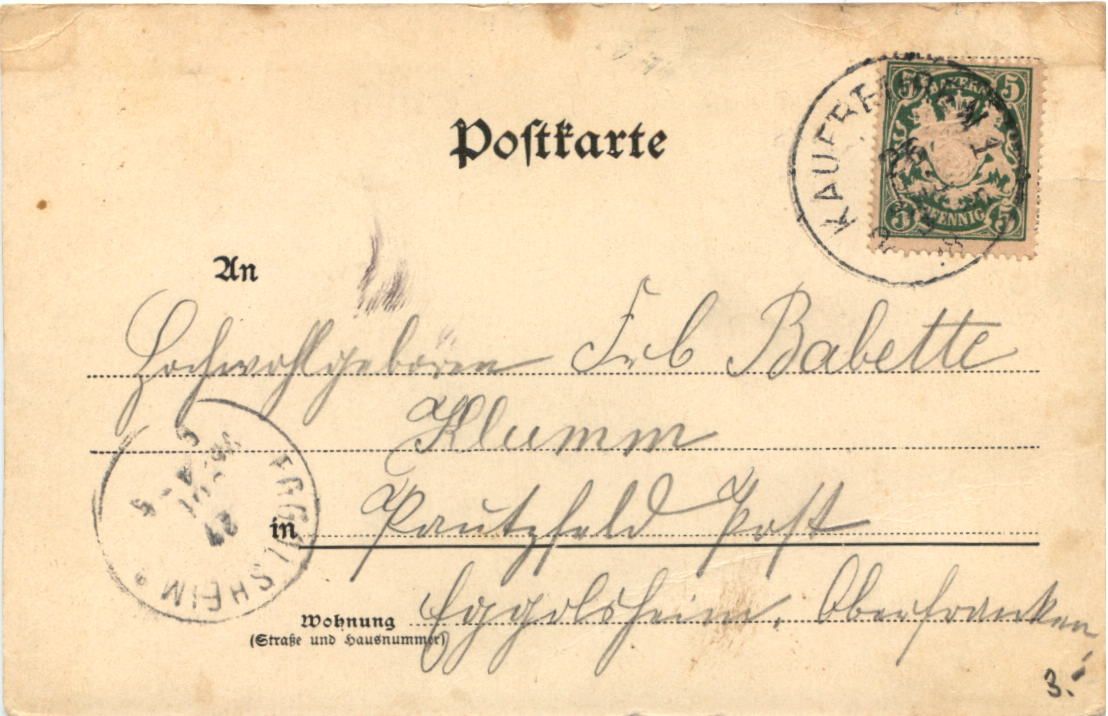 Postkarte
5 BAYERN 5
5 PFENNIG 5
KAUFBEUREN 1
An
Hochwohlgeboren Frl Babette
Klumm
in Pautzfeld Post
EGGOLSHEIM
27
Wohnung Eggolsheim, Oberfranken
(Straße und Hausnummer)
3.